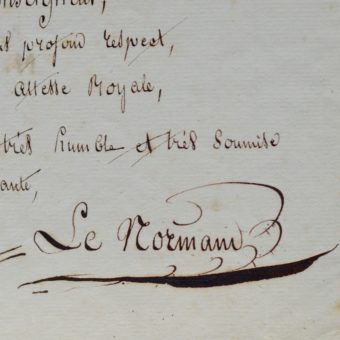 nseigneur,
profond respect,
Altesse Royale,
très humble et très soumise
ante,
Le Normand